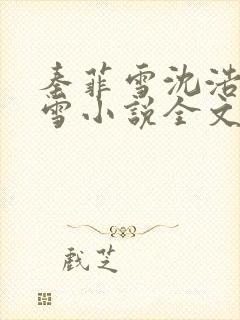 秦菲雪沈浩
雪小说全文
戲芝